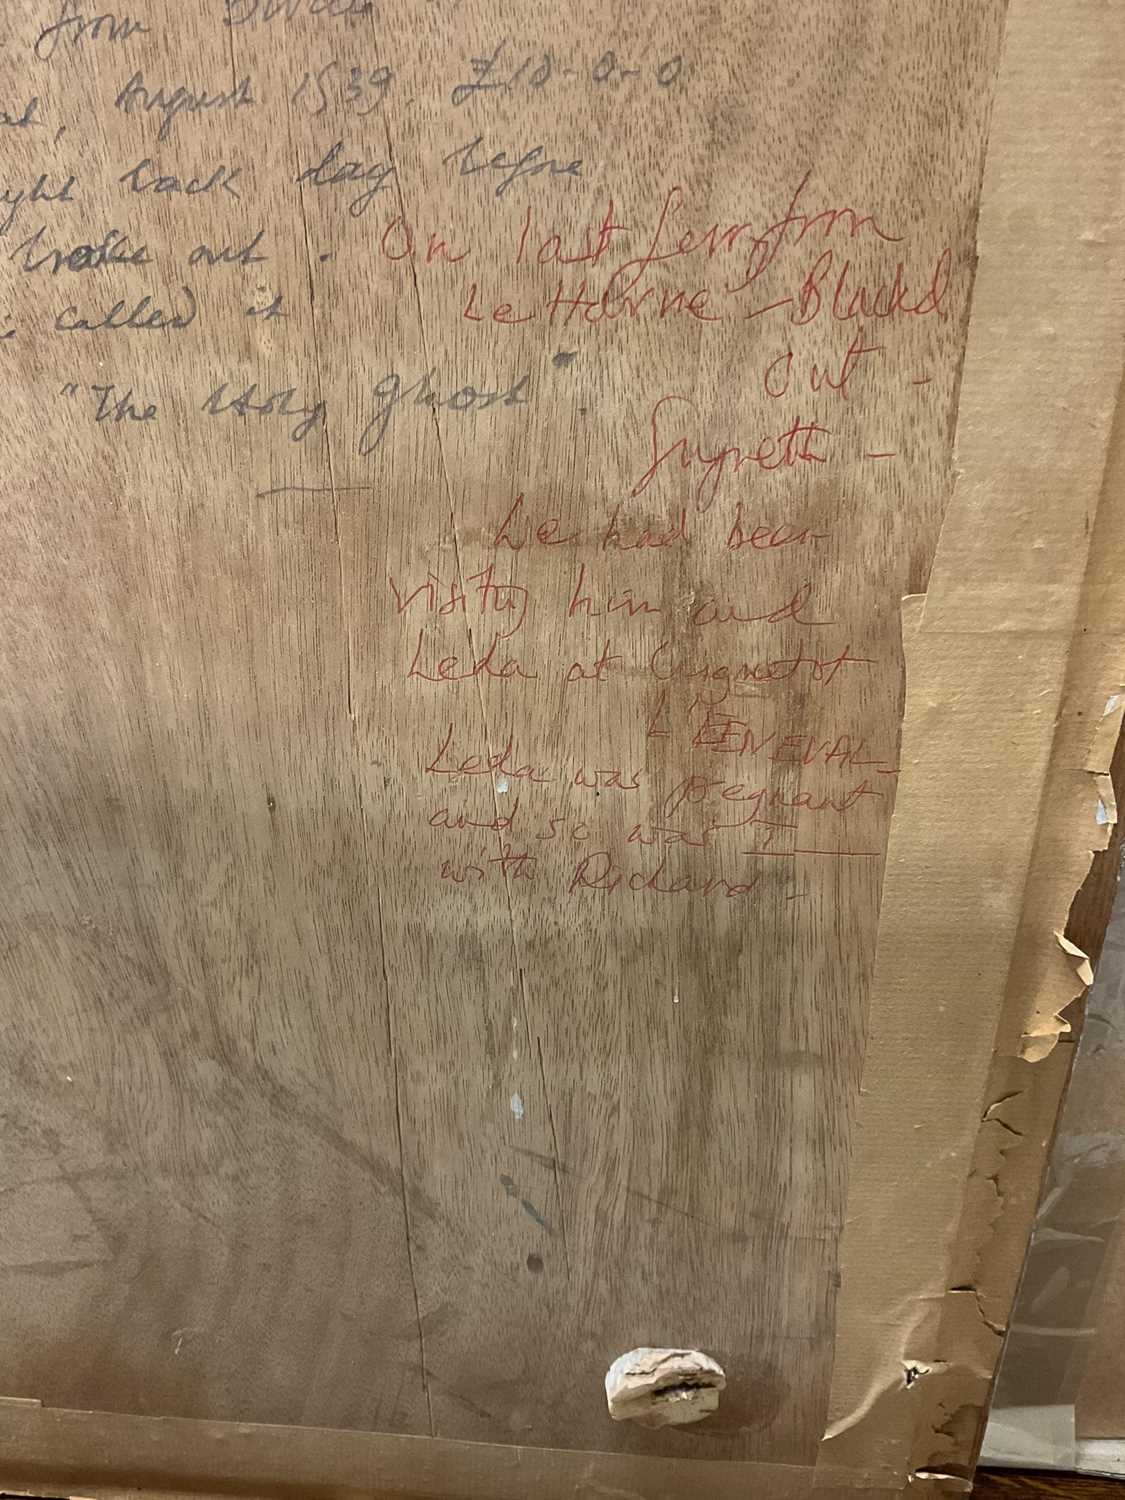 from
August 1939. £10-0-0
back day before
broke out.
called it
"The Holy Ghost"
On last ferry from
Le Havre - Blacked
out -
We had been
visiting him and
Leda at Cuguetot
L'ENEVAL -
Leda was pregnant
and so was I
with Richard -